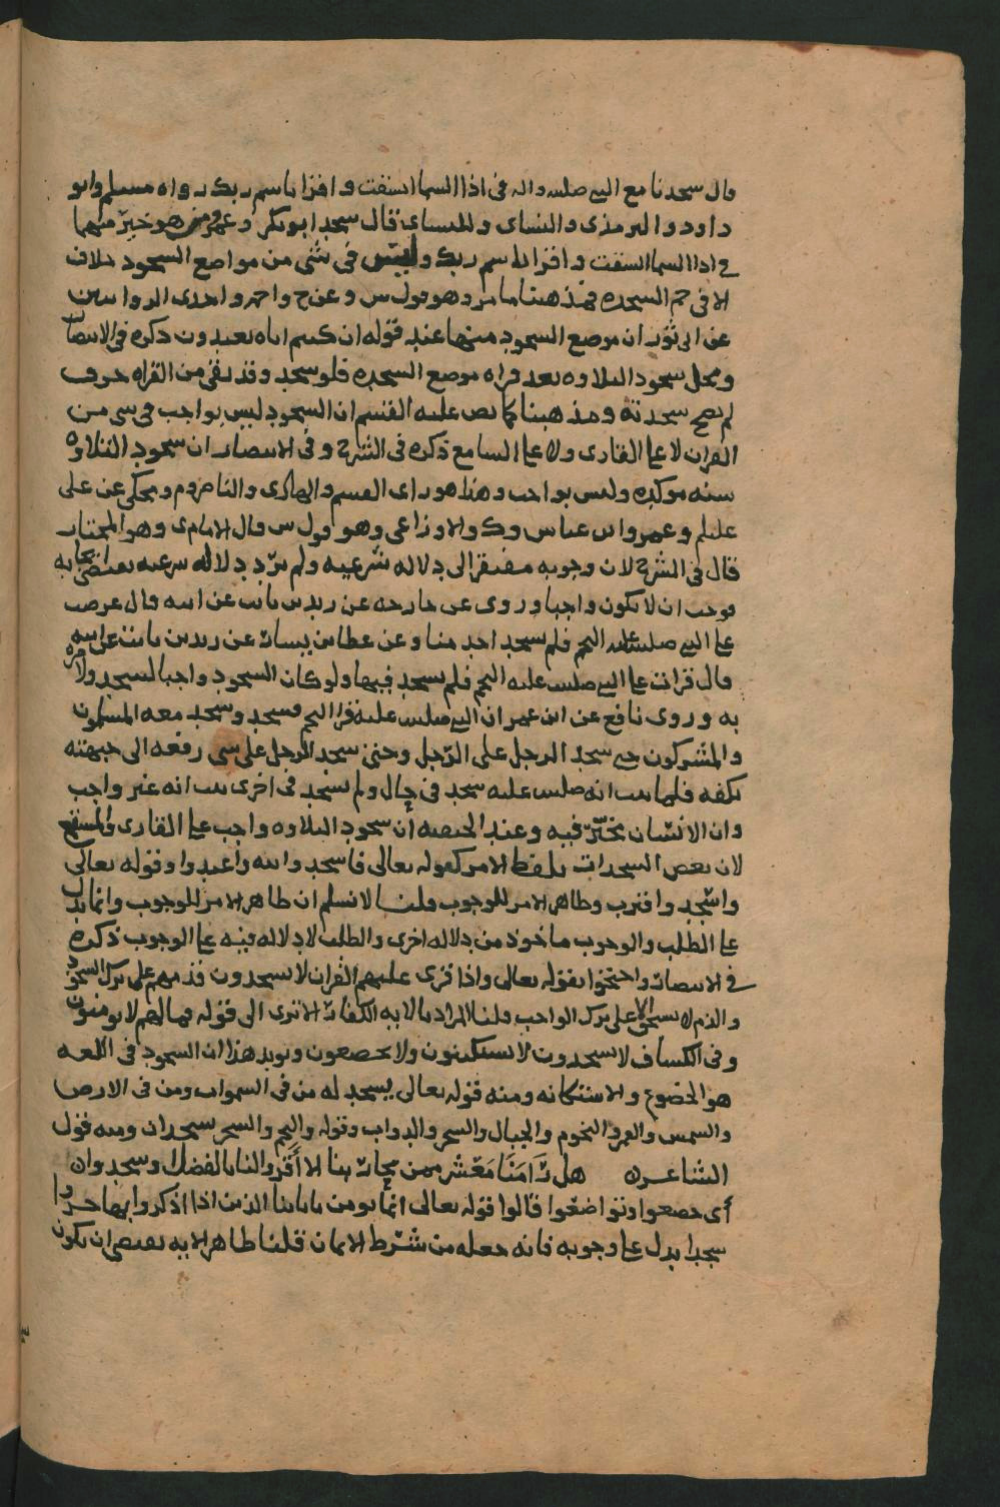 قال سجدنا مع النبي صلىه واله في اذا السما انشقت و اقرا باسم ربك رواه مسلم وابو
داود والترمذي والنساي وللنساي قال سجد ابو بكر وعمر ومن هو خير منهما
في اذا السما انشقت واقرا باسم ربك وليس في شي من مواضع السجود خلاف
الا في حم السجده فمذهبنا ما مر وهو قول س وعن ح واحمد واحدى الروايتين
عن ابي ثور ان موضع السجود منها عند قوله ان كنتم اياه تعبدون ذكره في الانتصار
ومحل سجود التلاوه بعد قراه موضع السجده فلو سجد وقد بقي من القراه حرف
لم تصح سجدته ومذهبنا كما نص عليه القسم ان السجود ليس بواجب في شي من
القران لا على القاري ولا على السامع ذكره في الشرح وفي الانتصار ان سجود التلاوه
سنه موكده وليس بواجب وهذا هو راي القسم والهادي والناصر وم ومحكي عن علي
علىلم وعمر وابن عباس وك والاوزاعي وهو قول س وقال الامام ى وهو المختار
قال في الشرح لان وجوبه مفتقر الى دلاله شرعيه ولم ترد دلاله شرعيه تقتضي ايجابه
فوجب ان لا يكون واجبا وروي عن خارجه عن زيد بن ثابت عن ابيه قال عرضت
على النبي صلىه عليه النجم فلم يسجد احد منا وعن عطا بن يسار عن زيد بن ثابت عن ابيه
قال قرات على النبي صلىه عليه النجم فلم يسجد فيها ولو كان السجود واجبا لسجد ولامره
به وروى نافع عن ابن عمر ان النبي صلىه عليه قرا النجم فسجد وسجد معه المسلمون
والمشركون حتى سجد الرجل على الرجل وحتى سجد الرجل على شي رفعه الى جبهته
بكفه فلما ثبت انه صلىه عليه سجد في حال ولم يسجد في اخرى ثبت انه غير واجب
وان الانسان مخير فيه وعند الحنفيه ان سجود التلاوه واجب على القاري والمستمع
لان بعض السجدات بلفظ الامر كقوله تعالى فاسجدوا لله واعبدوا وقوله تعالى
واسجد واقترب وظاهر الامر للوجوب قلنا لا نسلم ان ظاهر الامر للوجوب وانما يدل
على الطلب والوجوب ماخوذ من دلاله اخرى والطلب لا دلاله فيه على الوجوب ذكره
في الانتصار واحتجوا بقوله تعالى واذا قري عليهم القران لا يسجدون فذمهم على ترك السجود
والذم لا يستحق الا على ترك الواجب قلنا المراد بالايه الكفار الا ترى الى قوله فما لهم لا يومنون
وفي الكشاف لا يسجدون لا يستكينون ولا يخضعون ويويد هذا ان السجود في اللغه
هو الخضوع والاستكانه ومنه قوله تعالى يسجد له من في السموات ومن في الارض
والشمس والقمر والنجوم والجبال والشجر والدواب وقوله والنجم والشجر يسجدان ومنه قول
الشاعر ه هل رامنا معشر ممن يجاربنا الا اقروا لنا بالفضل وسجدوا ن
أي خضعوا وتواضعوا قالوا قوله تعالى انما يومن باياتنا الذين اذا ذكروا بها خروا
سجدا يدل على وجوبه فانه جعله من شرط الايمان قلنا ظاهر الايه يقتضي ان يكون